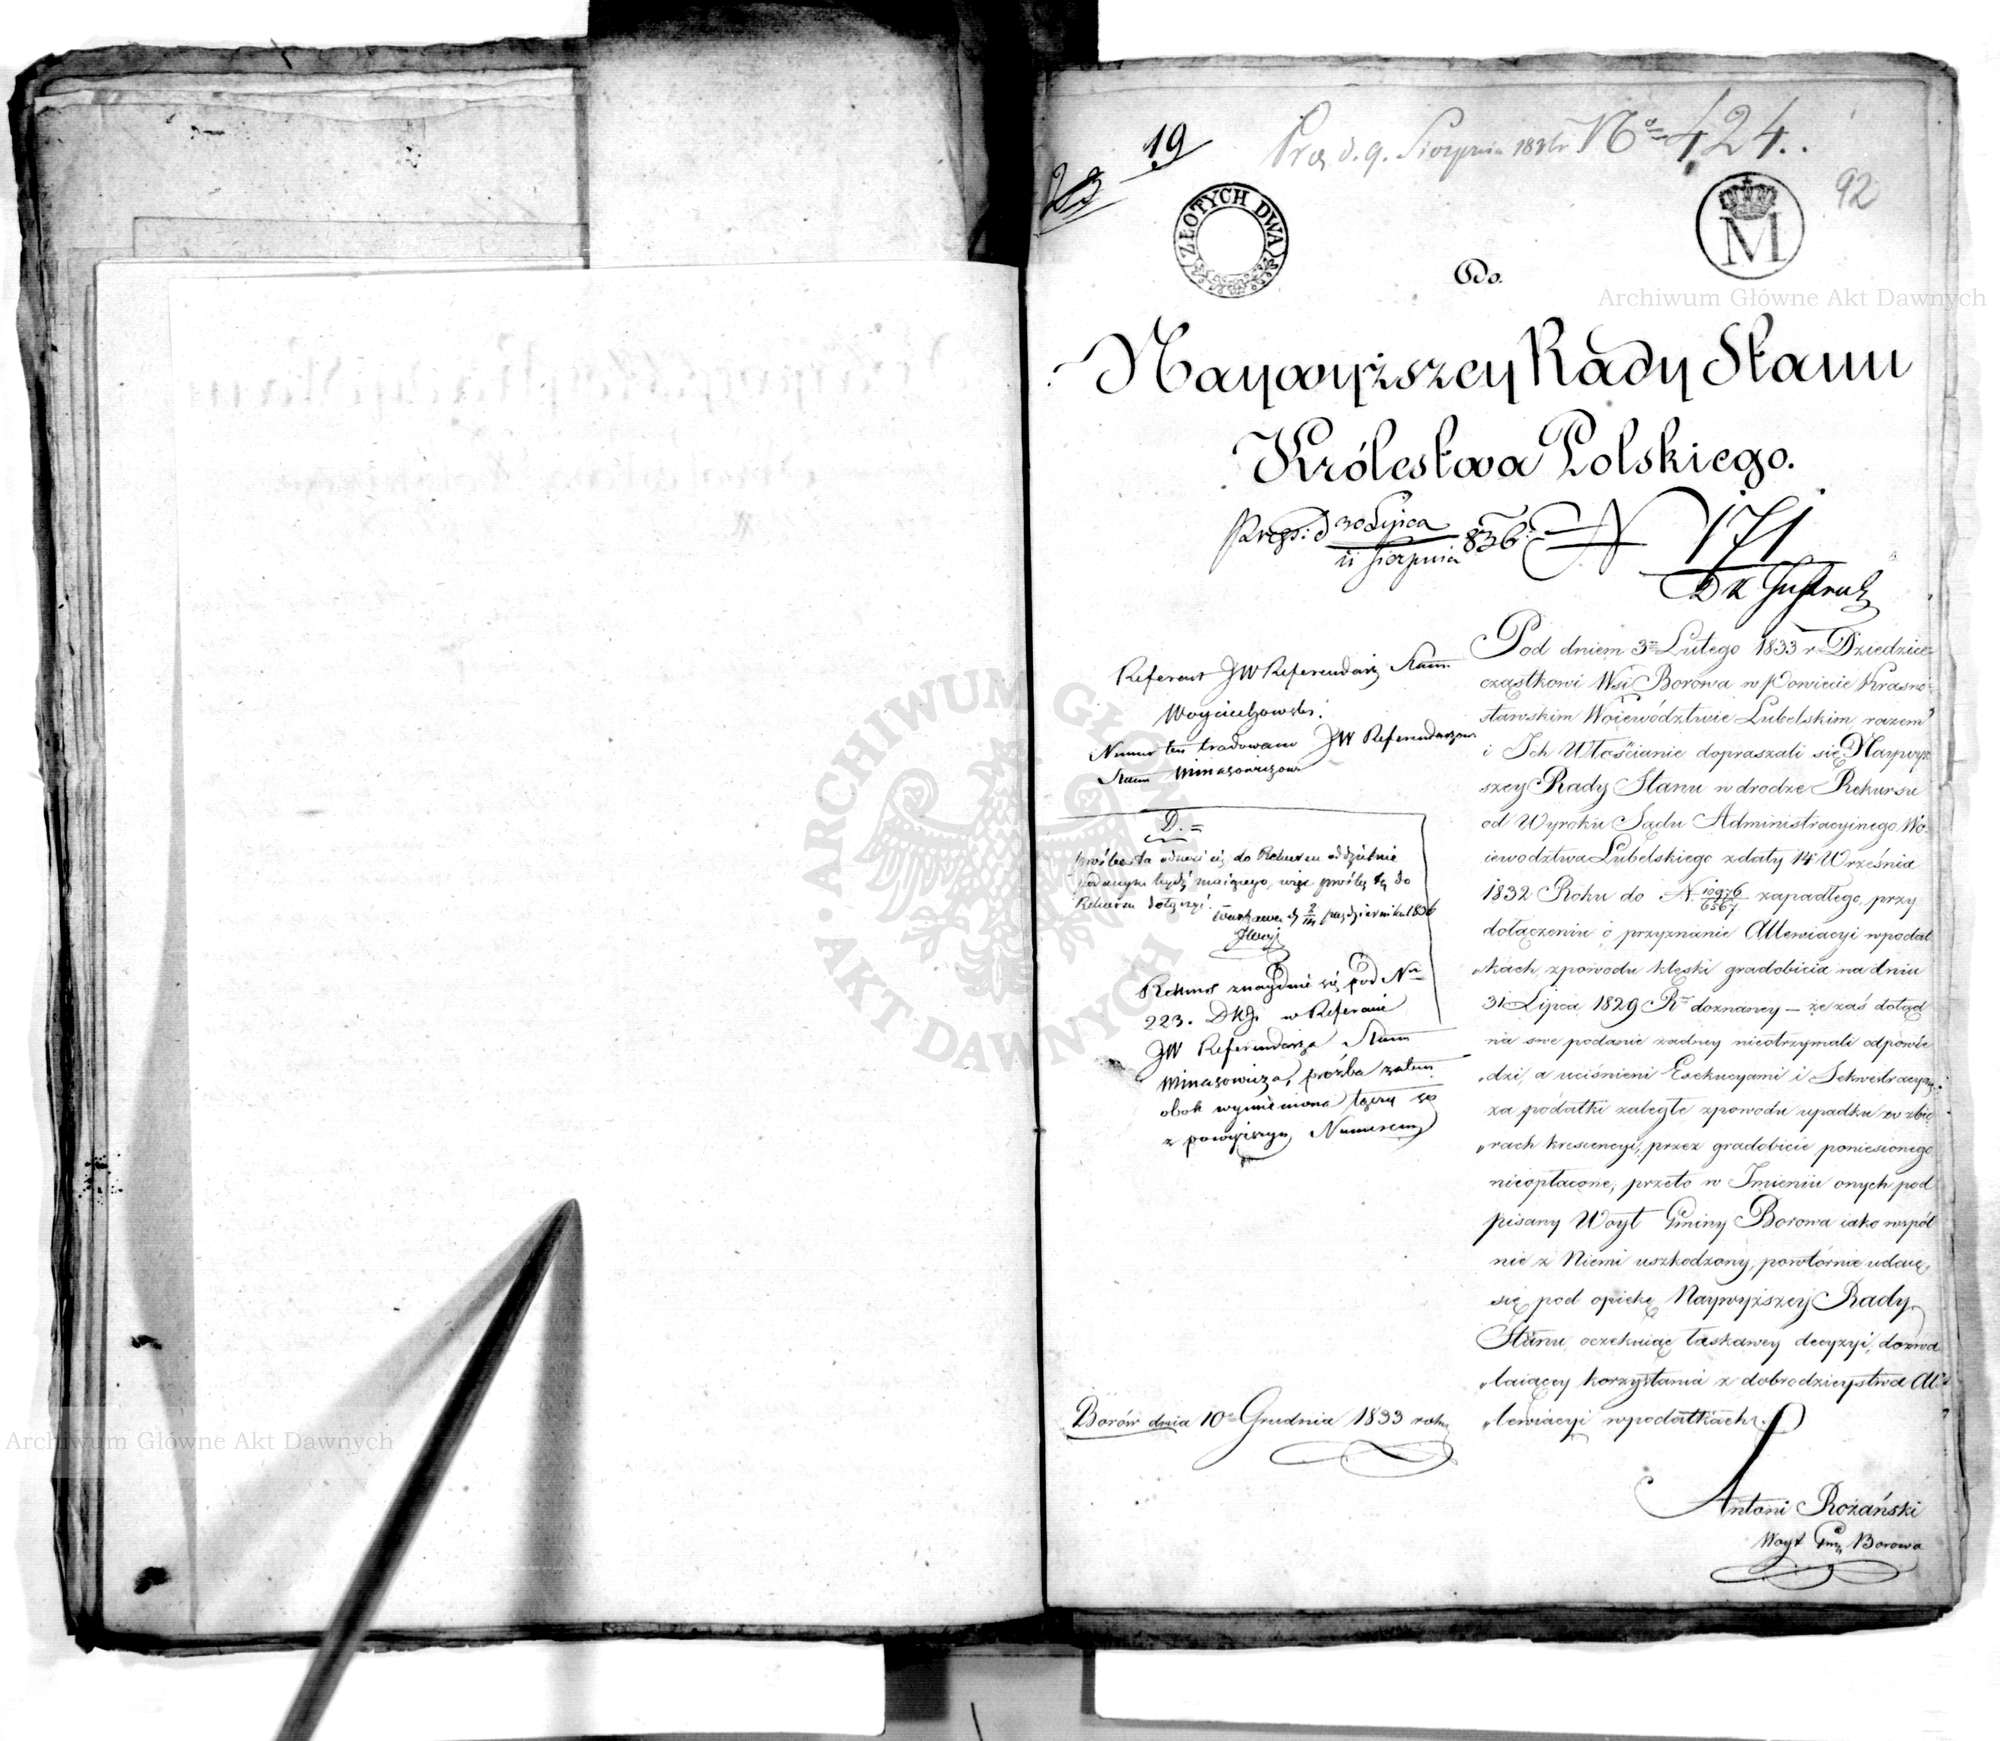 19
23
Prez d. 9. Sierpnia 1836 r No 424.
92
ZŁOTYCH DWA
M
Do.
Naywyższey Rady Stanu
Królestwa Polskiego.
Prez: d 30 Lipca / 11 Sierpnia 836 N 171
Referent JW Referendarz Stanu
Woyciechowski.
Numer ten tradowany JW Referendarzowi
Stanu Minasowiczowi
D.=
prośba ta odnosi się do Rekursu oddzielnie
podanym bydź maiącego, więc prośbę tę do
Rekursu dołączyć.
Warszawa d 2/14 października 1836
Rekurs znayduie się pod Nr
223. DKJ. w Referacie
JW Referendarza Stanu
Minasowicza, prośba zatem
obok wymieniona łączy się
z powyższym Numerem
Pod dniem 3m Lutego 1833 r. Dziedzice
cząstkowi Wsi Borowa w Powiecie Krasno-
stawskim Woiewództwie Lubelskim razem
i Ich Włościanie dopraszali się Naywyż
szey Rady Stanu w drodze Rekursu
od Wyroku Sądu Administracyinego Wo-
iewodztwa Lubelskiego z daty 14 Września
1832 Roku do N. 10976/6567 zapadłego, przy
dołączeniu o przyznanie Allewiacyi w podat
„kach, z powodu klęski gradobicia na dniu
31 Lipca 1829 R. doznaney – że zaś dotąd
na swe podanie żadney nieotrzymali odpowie
„dzi, a uciśnieni Exekucyami i Sekwestracyą
za podatki zaległe z powodu upadku w zbio
„rach krescencyi, przez gradobicie poniesionego
nieopłacone, przeto w Imieniu onych pod
pisany Woyt Gminy Borowa iako wspól
nie z Niemi uszkodzony, powtórnie udaię
się pod opiekę Naywyższey Rady
Stanu oczekuiąc łaskawey decyzyi, dozwa
„laiącey korzystania z dobrodzieystwa Al-
„lewiacyi w podatkach.
Borów dnia 10o Grudnia 1833 roku
Antoni Rożański
Woyt Gmy Borowa
Archiwum Główne Akt Dawnych
ARCHIWUM GŁÓWNE AKT DAWNYCH
Archiwum Główne Akt Dawnych